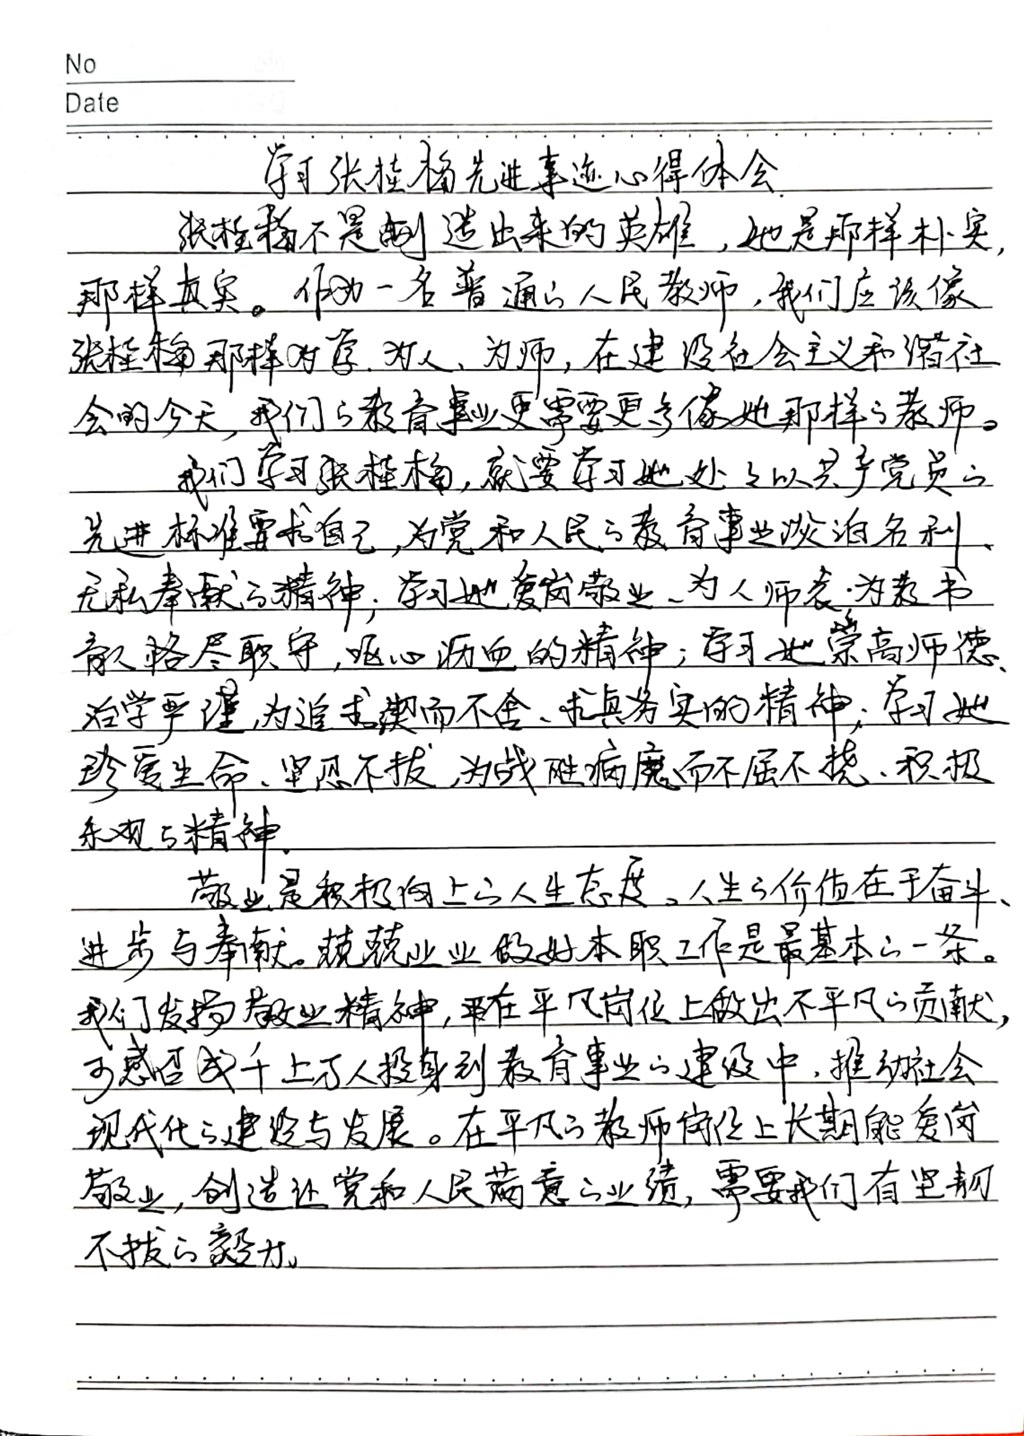 No
Date
学习张桂梅先进事迹心得体会
张桂梅不是制造出来的英雄，她是那样朴实，
那样真实。作为一名普通的人民教师，我们应该像
张桂梅那样为学、为人、为师，在建设社会主义和谐社
会的今天，我们的教育事业更需要更多像她那样的教师。
我们学习张桂梅，就要学习她处处以共产党员的
先进标准要求自己，为党和人民的教育事业淡泊名利、
无私奉献的精神；学习她爱岗敬业、为人师表，为教书
育人恪尽职守，呕心沥血的精神；学习她崇高师德、
治学严谨，为追求锲而不舍、求真务实的精神；学习她
珍爱生命、坚忍不拔，为战胜病魔而不屈不挠、积极
乐观的精神。
敬业是积极向上的人生态度。人生的价值在于奋斗、
进步与奉献。兢兢业业做好本职工作是最基本的一条。
我们发扬敬业精神，在平凡岗位上做出不平凡的贡献，
感召成千上万人投身到教育事业的建设中，推动社会
现代化的建设与发展。在平凡的教师岗位上长期能爱岗
敬业，创造让党和人民满意的业绩，需要我们有坚韧
不拔的毅力。